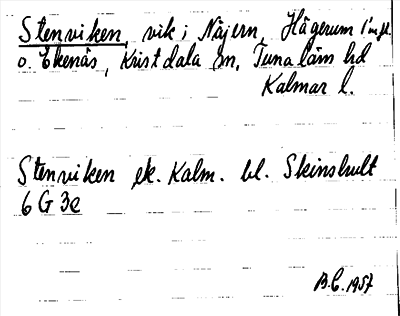 Stenviken, vik i Näjern, Hägerum 1 mfl.
o. Ekenäs, Kristdala sn, Tunaläns hd
Kalmar l.
Stenviken ek. Kalm. bl. Skinshult
6 G 3e
B.C. 1957